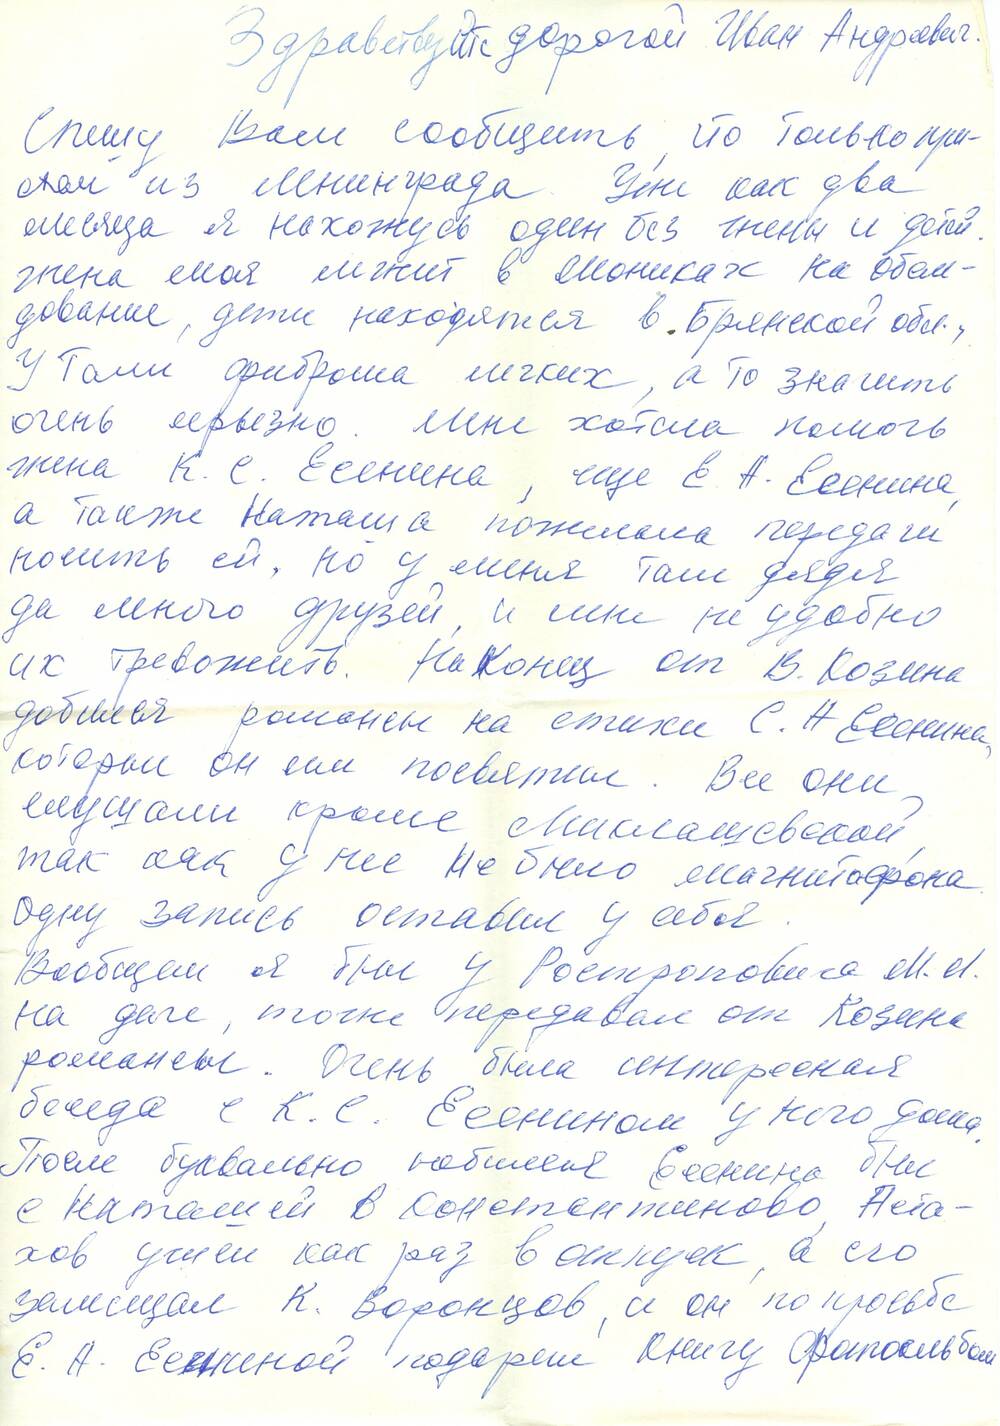 Здравствуйте дорогой Иван Андреевич.
Спешу Вам сообщить, что только при-
ехал из Ленинграда. Уже как два
месяца я нахожусь один без жены и детей.
жена моя лежит в Мониках на обсле-
дование, дети находятся в Брянской обл.,
У Тани фиброма легких, а то значить
очень серьезно. Мне хотела помочь
жена К. С. Есенина, еще Е. А. Есенина,
а также Наташа пожелала передачи
носить ей, но у меня там дядя
да много друзей, и мне не удобно
их тревожить. Наконец от В. Козина
добился романсы на стихи С. А Есенина,
которым он им посвятил. Все они
слушали кроме Миклашевской,
так как у нее не было магнитофона.
Одну запись оставил у себя.
Вообщем я был у Ростроповича М. Л.
на даче, тоже передавал от Козина
романсы. Очень была интересная
беседа с К. С. Есениным у него дома.
После буквально юбилея Есенина был
с Наташей в Константиново, Аста-
хов ушел как раз в отпуск, а его
замещал К. Воронцов, и он по просьбе
Е. А. Есениной подарил книгу Фотоальбом